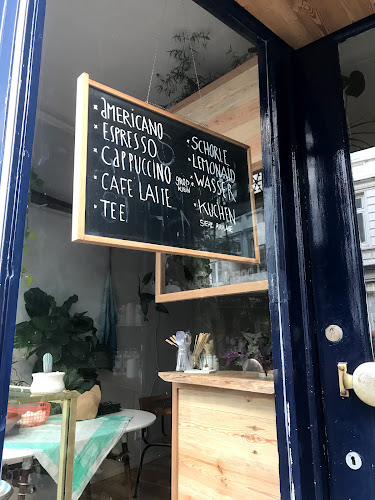 AMERICANO
ESPRESSO
CAPPUCCINO
CAFE LATTE
TEE
SCHORLE
LEMONAID
WASSER
KUCHEN